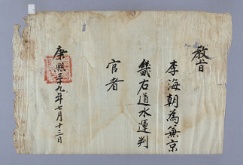 教旨
李海朝為兼京
畿右道水運判
官者
康熙三十九年七月十三日